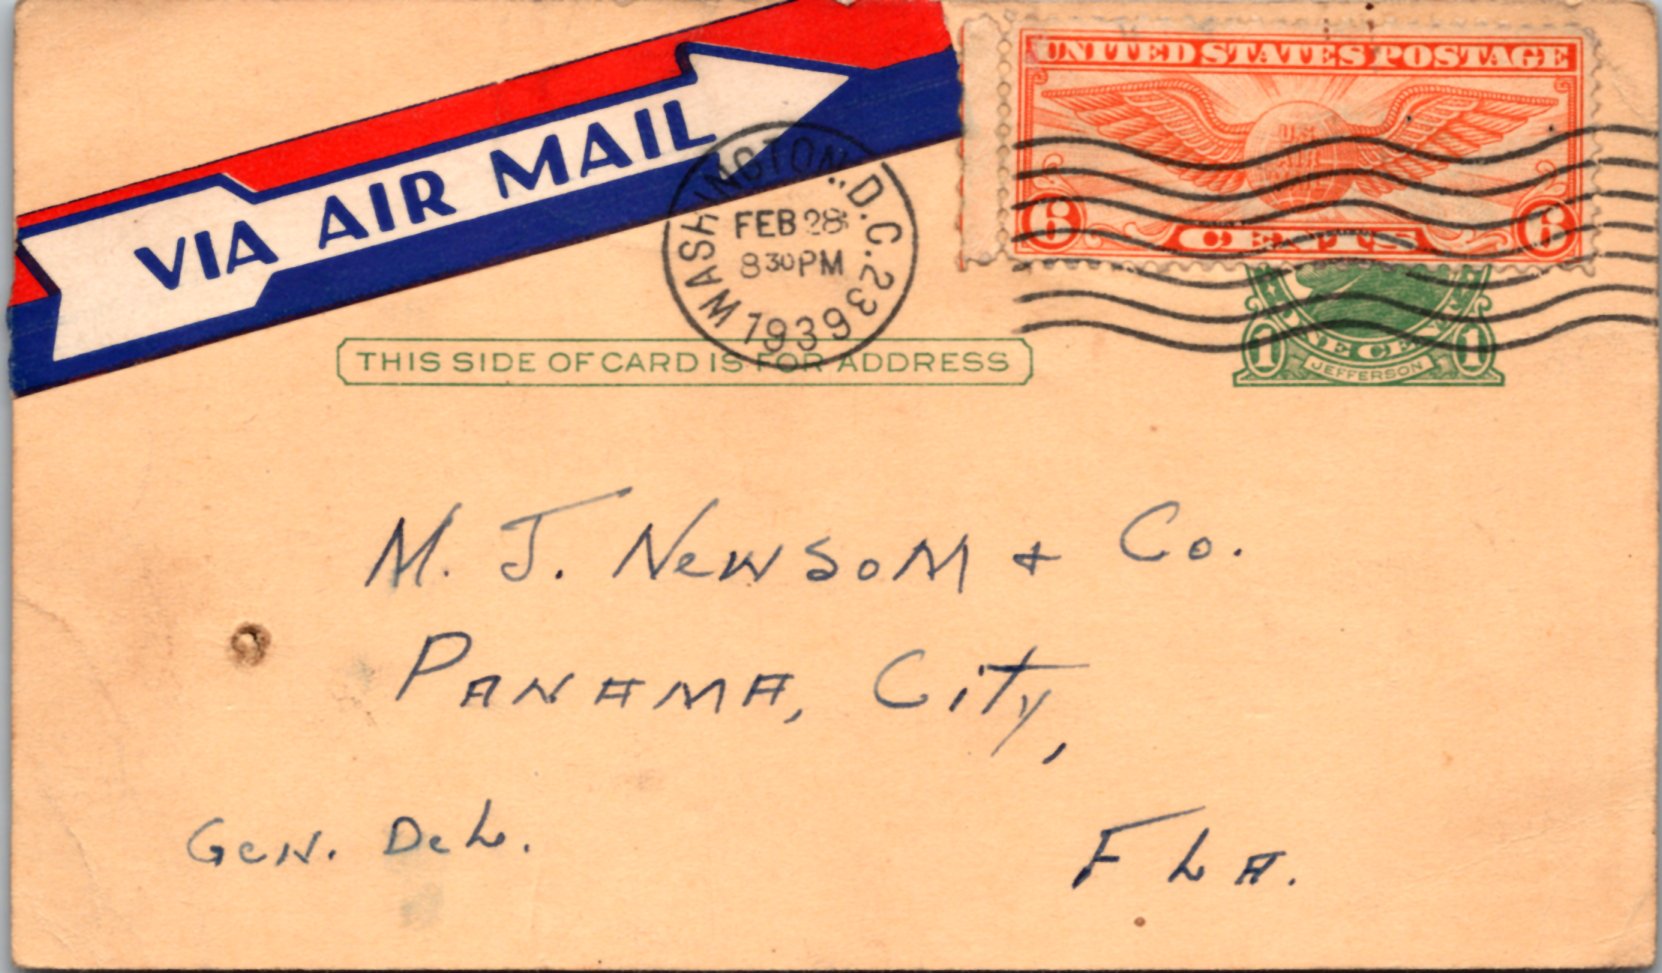 VIA AIR MAIL
UNITED STATES POSTAGE
U.S.
AIR
MAIL
6 CENTS 6
WASHINGTON, D.C. 23
FEB 28
8 30 PM
1939
1 ONE CENT 1
JEFFERSON
THIS SIDE OF CARD IS FOR ADDRESS
M. J. Newsom + Co.
Panama, City,
Gen. Del.
Fla.